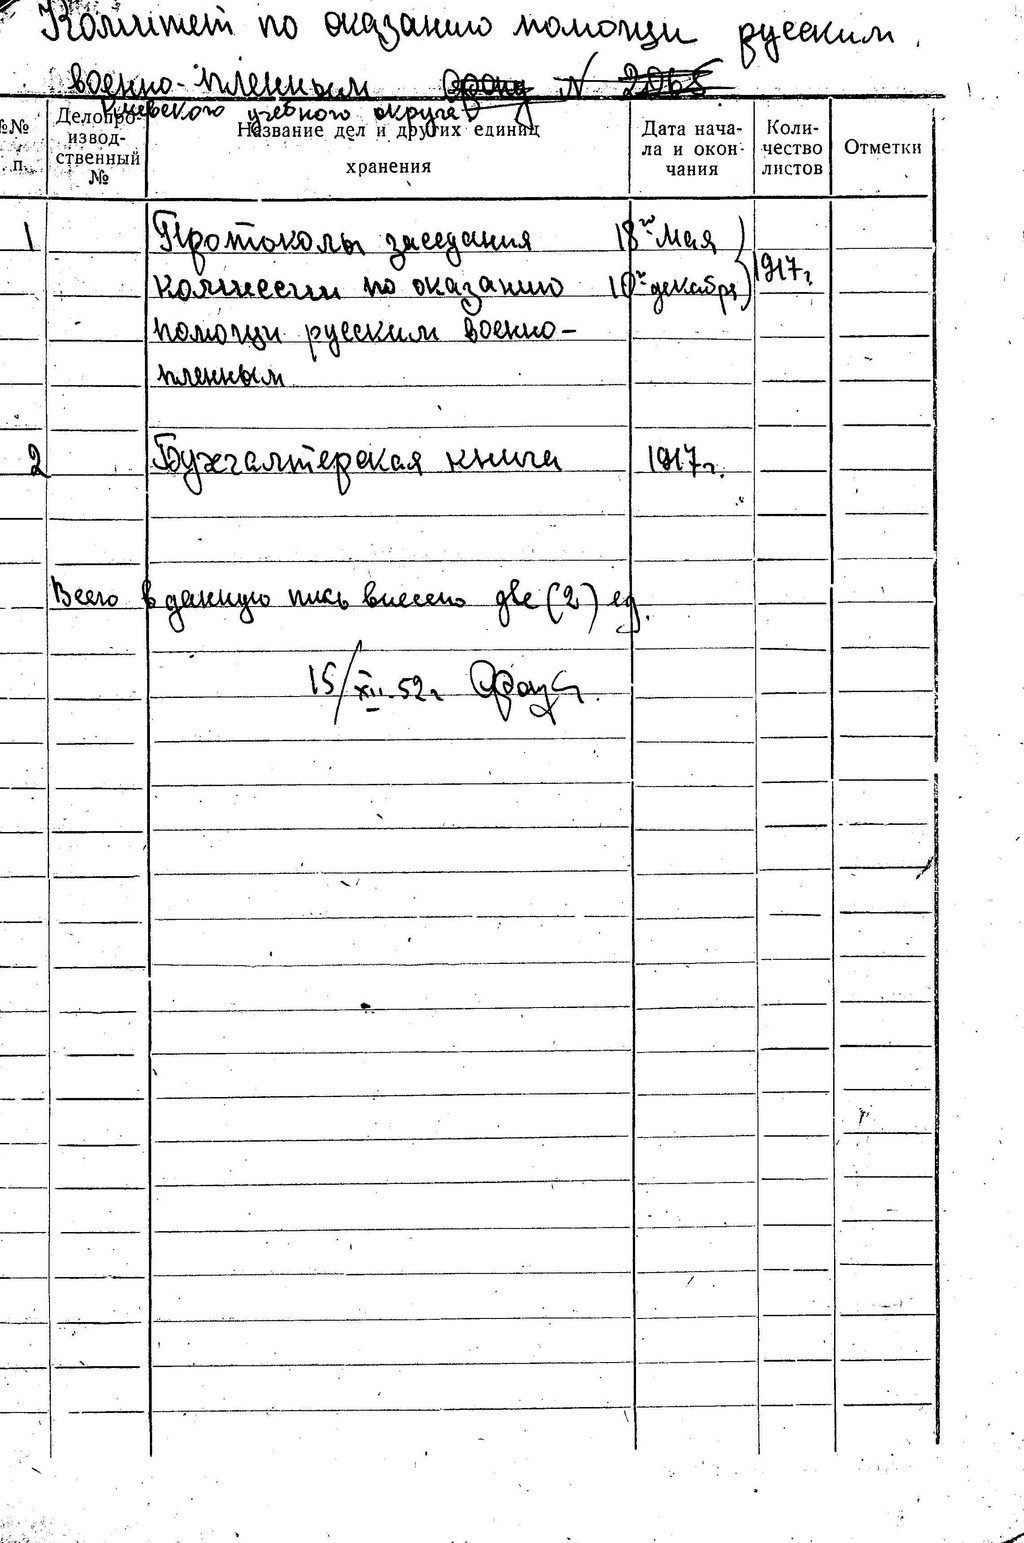 Комитет по оказанию помощи русским
военно-пленным Фонд N 2065
Киевского учебного округа
№№ п.
Делопро-
извод-
ственный
№
Название дел и других единиц
хранения
Дата нача-
ла и окон-
чания
Коли-
чество
листов
Отметки
1 Протоколы заседания 18го Мая
комиссии по оказанию 10го декабря 1917г.
помощи русским военно-
пленным
2 Бухгалтерская книга 1917г.
Всего в данную пись внесено две (2) ед.
15/XII.52г.